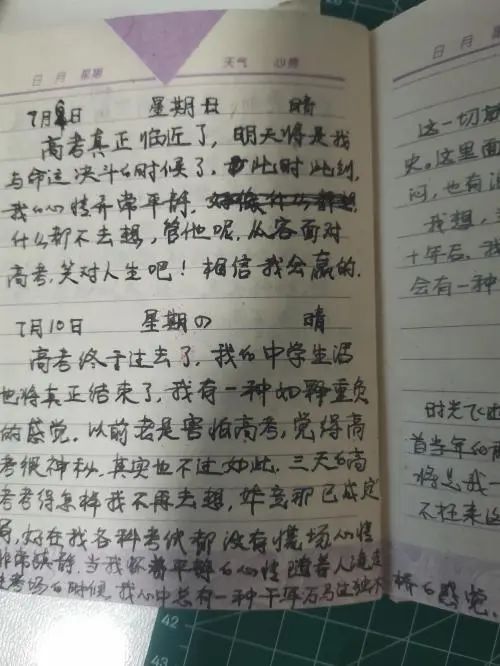 日 月 星期 天气 心情
7月6日 星期日 晴
高考真正临近了，明天将是我
与命运决斗的时候了，此时此刻，
我的心情异常平静，
什么都不去想，管他呢，从容面对
高考，笑对人生吧！相信我会赢的.
7月10日 星期四 晴
高考终于过去了，我的中学生活
也将真正结束了，我有一种如释重负
的感觉。以前老是害怕高考，觉得高
考很神秘，其实也不过如此。三天的高
考考得怎样我不再去想，毕竟那已成定
局，好在我各科考试都没有慌场心情
非常镇静，当我怀着平静的心情随着人流走
出考场的时候，我心中总有一种千军万马过独木
桥的感觉.
日 月 星
这一切
史。这里面
闷，也有
我想，
十年后，我
会有一种
时光飞
首当年的
将是我一
不枉来
42
43